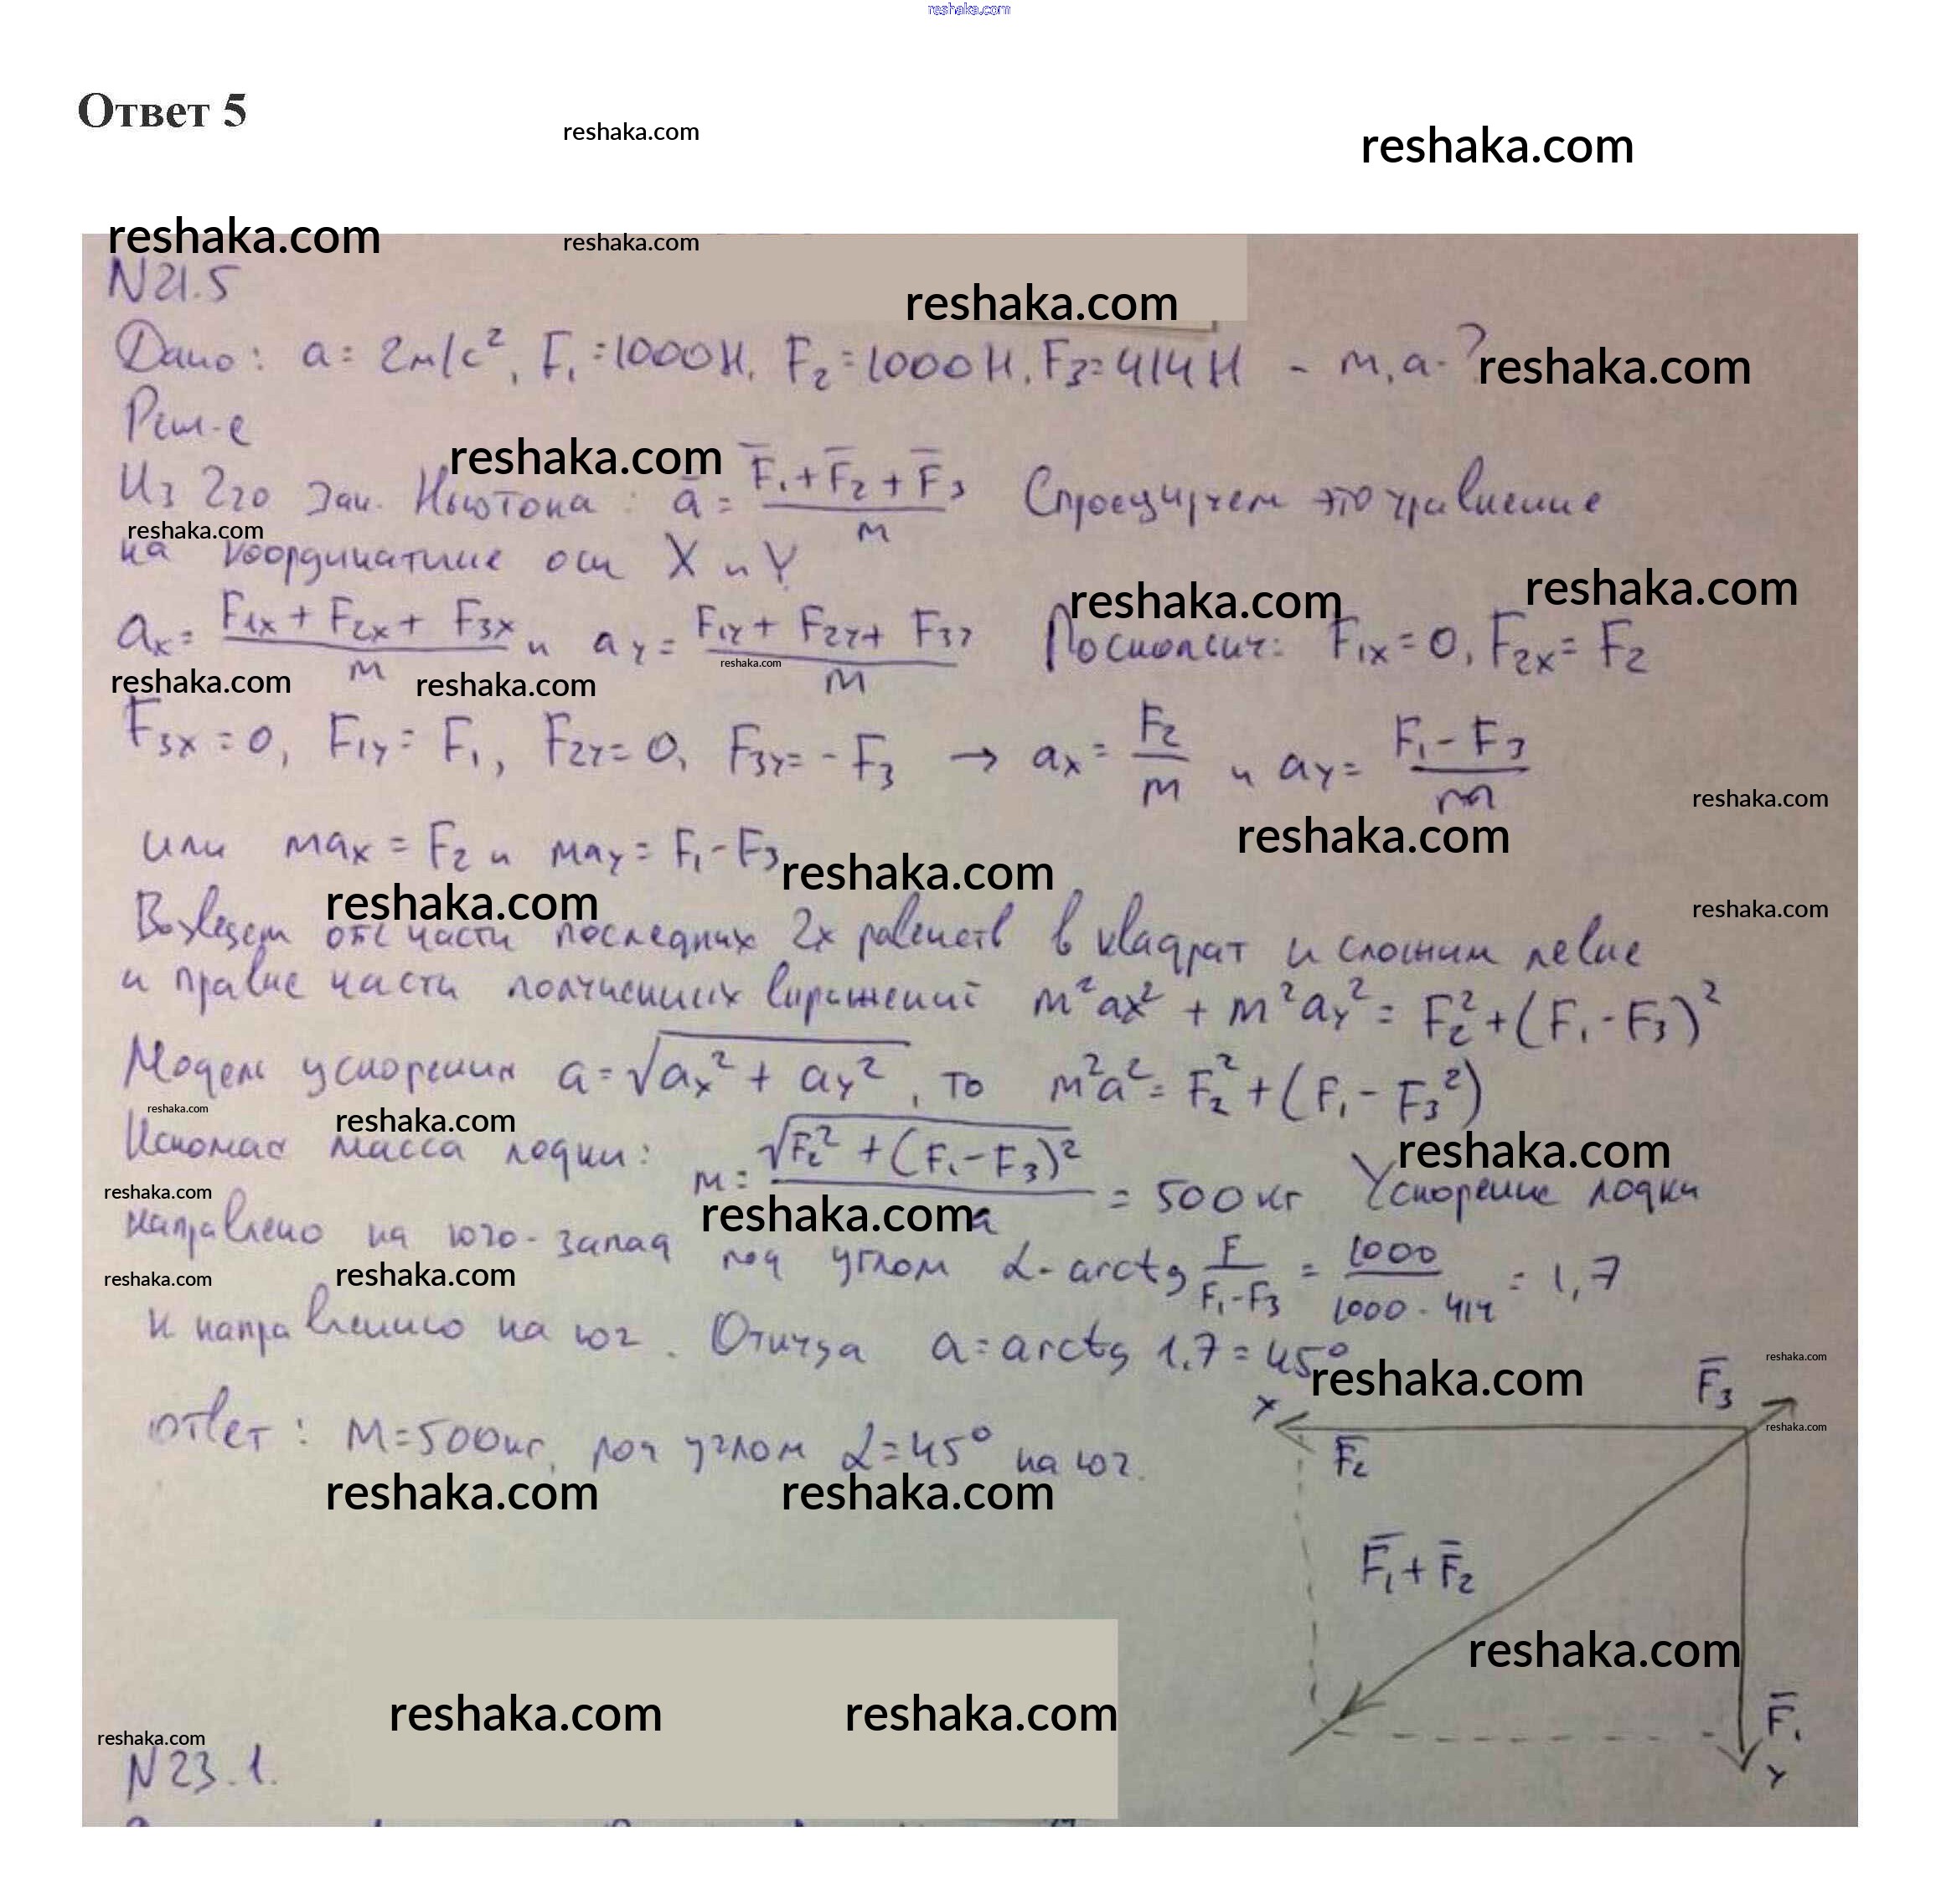 reshaka.com
Ответ 5
reshaka.com
reshaka.com
reshaka.com
reshaka.com
N21.5
reshaka.com
Дано: a = 2м/с², F₁=1000Н, F₂=1000Н, F₃=414Н - m, a-?
reshaka.com
Реш-е
reshaka.com
Из 2го зак. Ньютона: a̅ = (F̅₁+F̅₂+F̅₃)/m Спроецируем это уравнение
reshaka.com
на координатные оси X и Y
reshaka.com
reshaka.com
aₓ = (F₁ₓ + F₂ₓ + F₃ₓ)/m и aY = (F₁Y + F₂Y + F₃Y)/m Поскольку: F₁ₓ = 0, F₂ₓ = F₂
reshaka.com
reshaka.com
reshaka.com
F₃ₓ = 0, F₁Y = F₁, F₂Y = 0, F₃Y = -F₃ → aₓ = F₂/m и aY = (F₁ - F₃)/m
reshaka.com
reshaka.com
или maₓ = F₂ и maY = F₁ - F₃
reshaka.com
reshaka.com
reshaka.com
Возведем обе части последних 2х равенств в квадрат и сложим левые
и правые части полученных выражений m²aₓ² + m²aY² = F₂² + (F₁ - F₃)²
Модель ускорения a = √(aₓ² + aY²), то m²a² = F₂² + (F₁ - F₃²)
reshaka.com
reshaka.com
Искомая масса лодки: m = √(F₂² + (F₁ - F₃)²)/a = 500кг Ускорение лодки
reshaka.com
reshaka.com
reshaka.com
направлено на юго-запад под углом α - arctg F/(F₁-F₃) = 1000/(1000 - 414) = 1,7
reshaka.com
reshaka.com
к направлению на юг. Откуда a = arctg 1,7 = 45°
reshaka.com
reshaka.com
ответ: M=500кг, под углом α=45° на юг.
reshaka.com
reshaka.com
reshaka.com
X
F̅₃
F̅₂
F̅₁ + F̅₂
reshaka.com
F̅₁
Y
reshaka.com
reshaka.com
reshaka.com
N23.1.